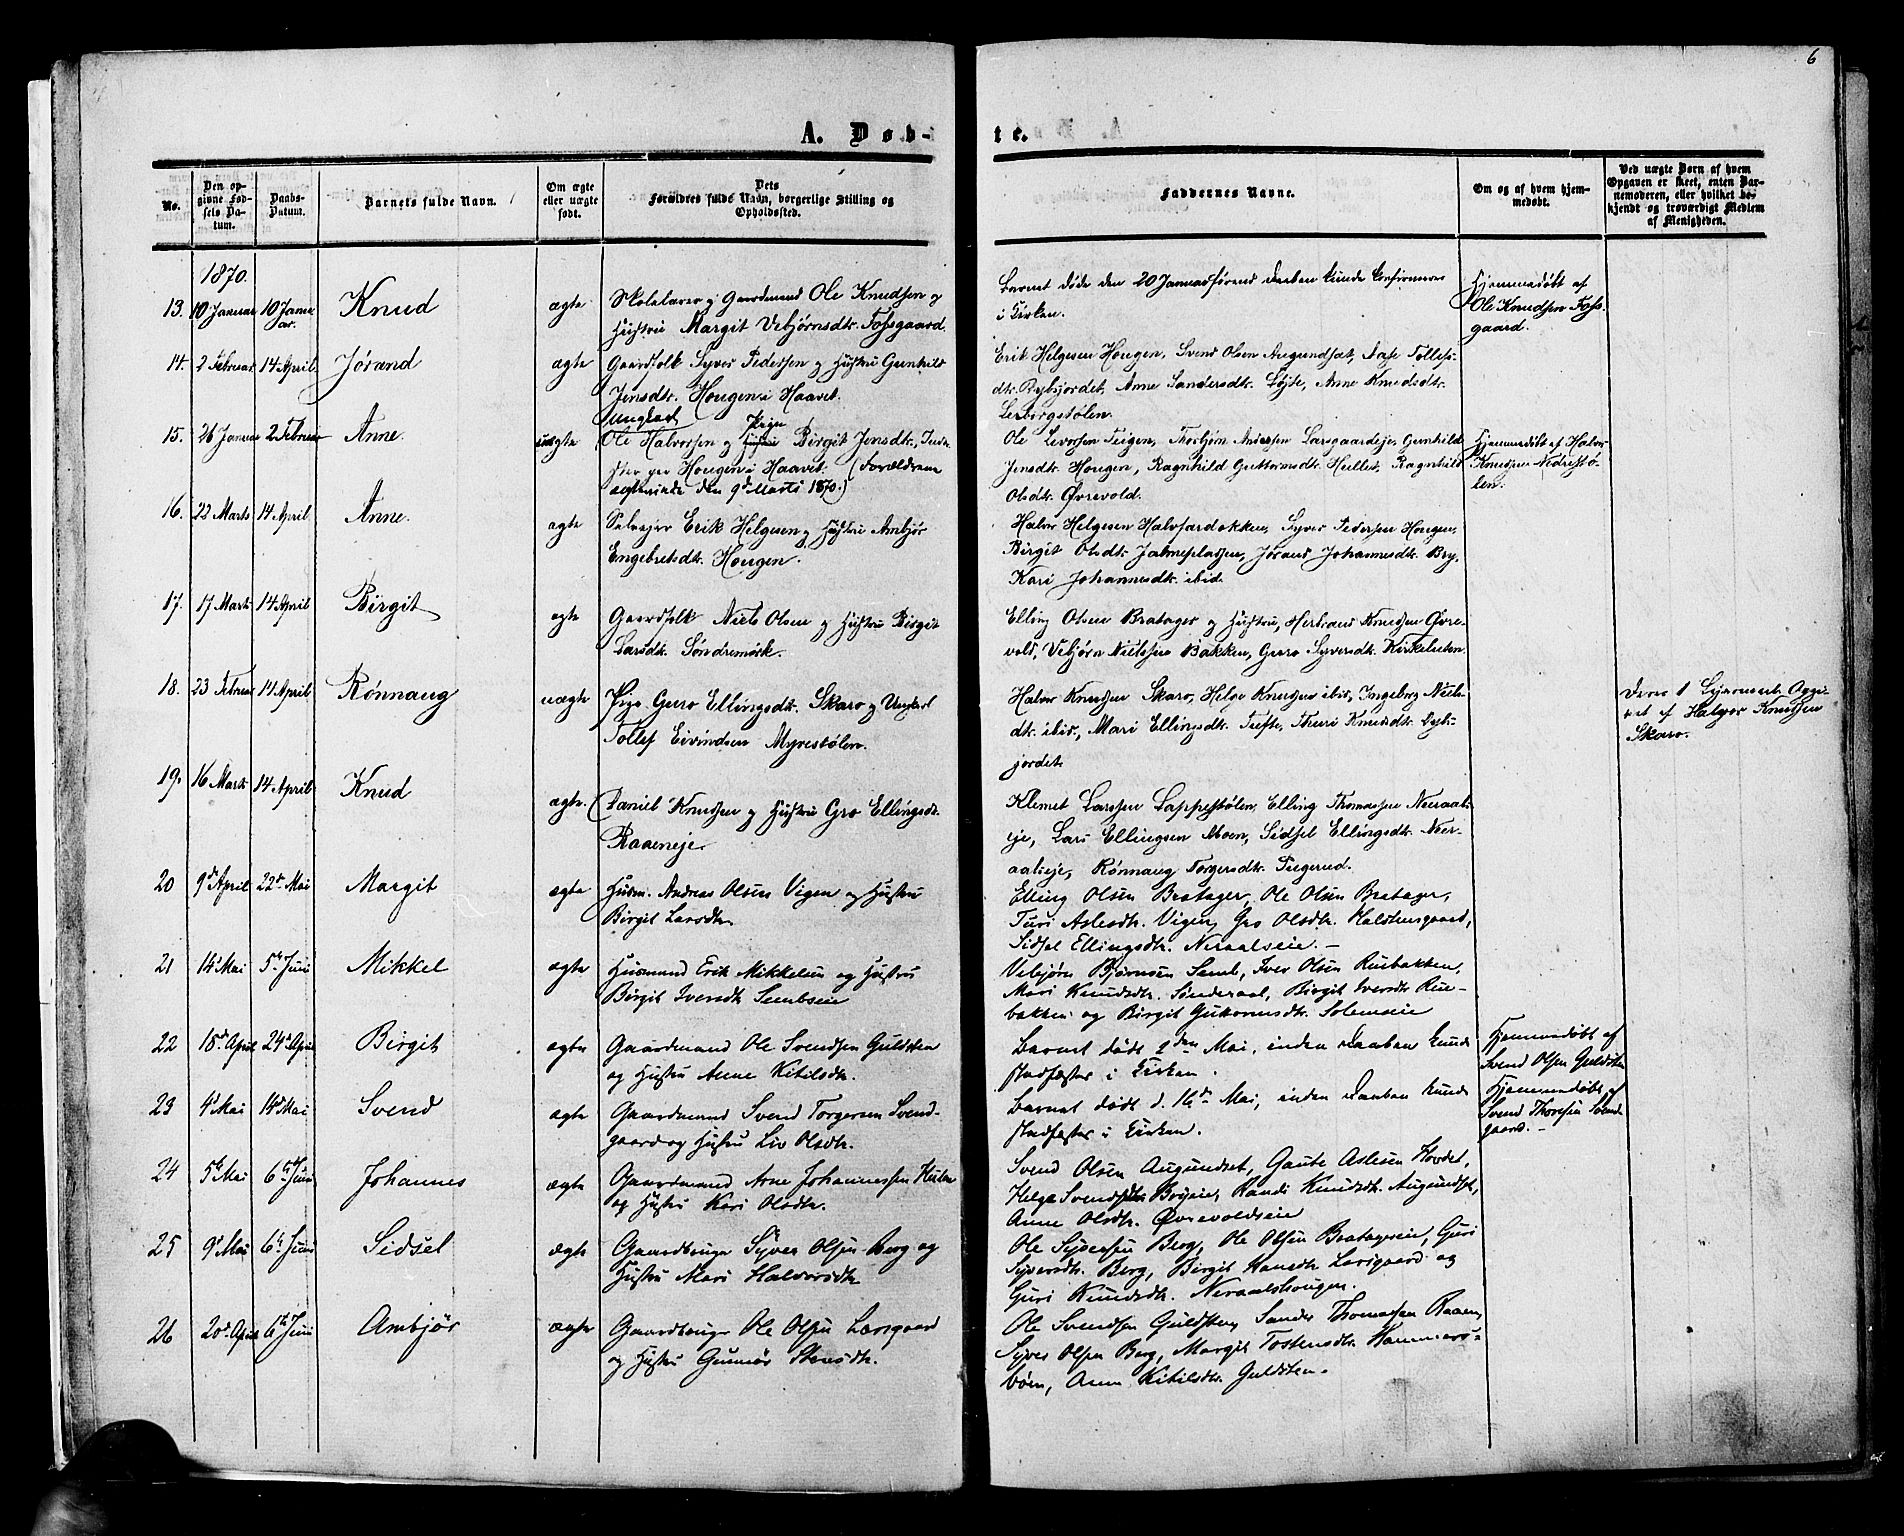 6
A. Døb-
te.
No.
Den op-
givne Fød-
sels Da-
tum.
Daabs-
Datum.
Barnets fulde Navn.
Om ægte
eller uægte
født.
Dets
Forældres fulde Navn, borgerlige Stilling og
Opholdssted.
Faddernes Navne.
Om og af hvem hjem-
medøbt.
Ved uægte Børn af hvem
Opgaven er skeet, enten Bar-
nemoderen, eller hvilket be-
kjendt og troværdigt Medlem
af Menigheden.
1870.
13. 10 Januar 10 Janu-
ar. Knud ægte Skolelærer og Gaardmand Ole Knudsen og
Hustru Margit Vebjørnsdtr. Fossgaard.
Barnet døde den 20 Januar førend Daaben kunde confirmeres
i Kirken.
Hjemmedøbt af
Ole Knudsen Foss-
gaard.
14. 2 Februar 14 April Jørand ægte Gaardfolk Syver Pedersen og Hustru Gunhild
Jensdtr. Hougen i Haavet.
Erik Helgesen Hougen, Svend Olsen Augundsæt, Aase Tollefs-
dtr. Bybjordet, Anne Sandersdtr. Løjte, Anne Knudsdtr.
15. 26 Januar 2 Februar Anne. uægte Ungkarl
Ole Halvorsen og Pige Birgit Jensdtr., Inder-
ster paa Hougen i Haavet. (Forældrene
ægteviede den 9de Marts 1870.)
Ole Levorsen Teigen, Thorbjørn Andersen Larsgaardeje, Gunhild
Jensdtr. Hougen, Ragnhild Guttormsdtr. Hulles, Ragnhild
Olsdtr. Øvrevold.
Hjemmedøbt af Halvor
Knudsen Nedrestø-
len.
16. 22 Marts 14 April Anne. ægte Selvejer Erik Helgesen og Hustru Ambjør
Engebretsdtr. Hougen.
Halvor Helgesen Halvfardokken, Syver Pedersen Hougen,
Birgit Olsdtr. Jalmeplassen, Jørand Johannesdtr. Bry,
Kari Johannesdtr. ibid.
17. 17 Marts 14 April Birgit ægte Gaardfolk Niels Olsen og Hustru Birgit
Larsdtr. Søndremørk.
Elling Olsen Bratager og Hustru, Herbrand Knudsen Øvre-
vold, Vebjørn Nielssen Bakken, Guro Syversdtr. Kirkeleten.
18. 23 Februar 14 April Rønnaug uægte Pige Guro Ellingsdtr. Skaro og Ungkarl
Tollef Eivindsen Myrestølen.
Halvor Knudsen Skaro, Helge Knudsen ibid., Ingeborg Niels-
dtr. ibid., Mari Ellingsdtr. Tufte, Thuri Knudsdtr. Byb-
jordet.
Deres 1 Lejermaal. Opgi-
vet af Halvor Knudsen
Skaro.
19. 16 Marts 14 April Knud ægte. Daniel Knudsen og Hustru Gro Ellingsdtr.
Raaeneje.
Klemet Larssen Lappestølen, Elling Thomassen Neraal-
eje, Lars Ellingsen Moen, Sidsel Ellingsdtr. Ner-
aaleje, Rønnaug Torgersdtr. Tingerud.
20 9de April 22de Mai Margit ægte Husm. Andreas Olsen Vigen og Hustru
Birgit Larsdtr.
Elling Olsen Bratager, Ole Olsen Bratager,
Turi Aslesdtr. Vigen, Gro Olsdtr. Halstensgaard,
Sidsel Ellingsdtr. Neraalseie. –
21 14d Mai 5te Juni Mikkel ægte Husmand Erik Mikkelsen og Hustru
Birgit Iversdtr Sembseie
Vebjørn Bjørnsen Semb, Iver Olsen Ruebakken,
Mari Knudsdtr. Sønderaal, Birgit Iversdtr Rue-
bakken og Birgit Guttormsdtr. Solemseie
22 18de April 24de April Birgit ægte Gaardmand Ole Svendsen Guldsten
og Hustru Anne Kitilsdtr.
Barnet dødt 1den Mai, inden Daaben kunde
stadfæstes i Kirken.
Hjemmedøbt af
Svend Olsen Guldsten
23 4d Mai 14d Mai Svend ægte Gaardmand Svend Torgersen Svend-
gaard og Hustru Liv Olsdtr.
Barnet dødt d. 16de Mai, inden Daaben kunde
stadfæstes i Kirken.
Hjemmedøbt af
Svend Thoresen Svend-
gaard. –
24 5te Mai 6te Juni Johannes ægte Gaardmand Arne Johannessen
og Hustru Kari Olsdtr.
Svend Olsen Augundset, Gaute Aslesen Hovdet,
Helge Svendsen Bryeie, Randi Knudsdtr. Augundset,
Anne Olsdtr. Øvrevoldseie
25 9d Mai 6te Juni Sidsel ægte Gaardbruger Syver Olsen Berg og
Hustru Mari Halvorsdtr
Ole Syversen Berg, Ole Olsen Bratagereie, Guri
Syversdtr. Berg, Birgit Hansdtr Larsgaard og
Guri Knudsdtr. Neraalshougen.
26 20d April 6te Juni Ambjør ægte Gaardbruger Ole Olsen Larsgaard
og Hustru Gunnør Stensdtr.
Ole Svendsen Guldsten, Sander Thomassen Raaen,
Syver Olsen Berg, Margit Tostensdtr. Hammers-
bøen, Anne Kitilsdtr. Guldsten.